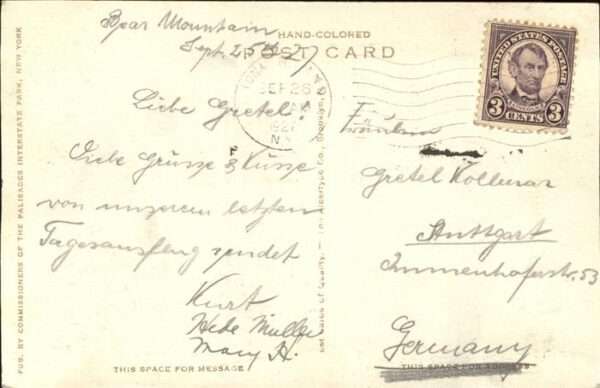 Bear Mountain
Sept. 25th 27
HAND-COLORED
POST CARD
SEP 26
1927
N.Y.
UNITED STATES POSTAGE
LINCOLN
3 CENTS 3
Liebe Gretel!
Liebe Grüsse & Küsse
von unserem letzten
Tagesausflug sendet
Kurt
Hede Müller
Mary H.
Fräulein
Gretel
Stuttgart
Immenhoferstr. 53
Germany
THIS SPACE FOR MESSAGE
THIS SPACE FOR ADDRESS
PUB. BY COMMISSIONERS OF THE PALISADES INTERSTATE PARK, NEW YORK
Albertype Co., Brooklyn, N.Y.